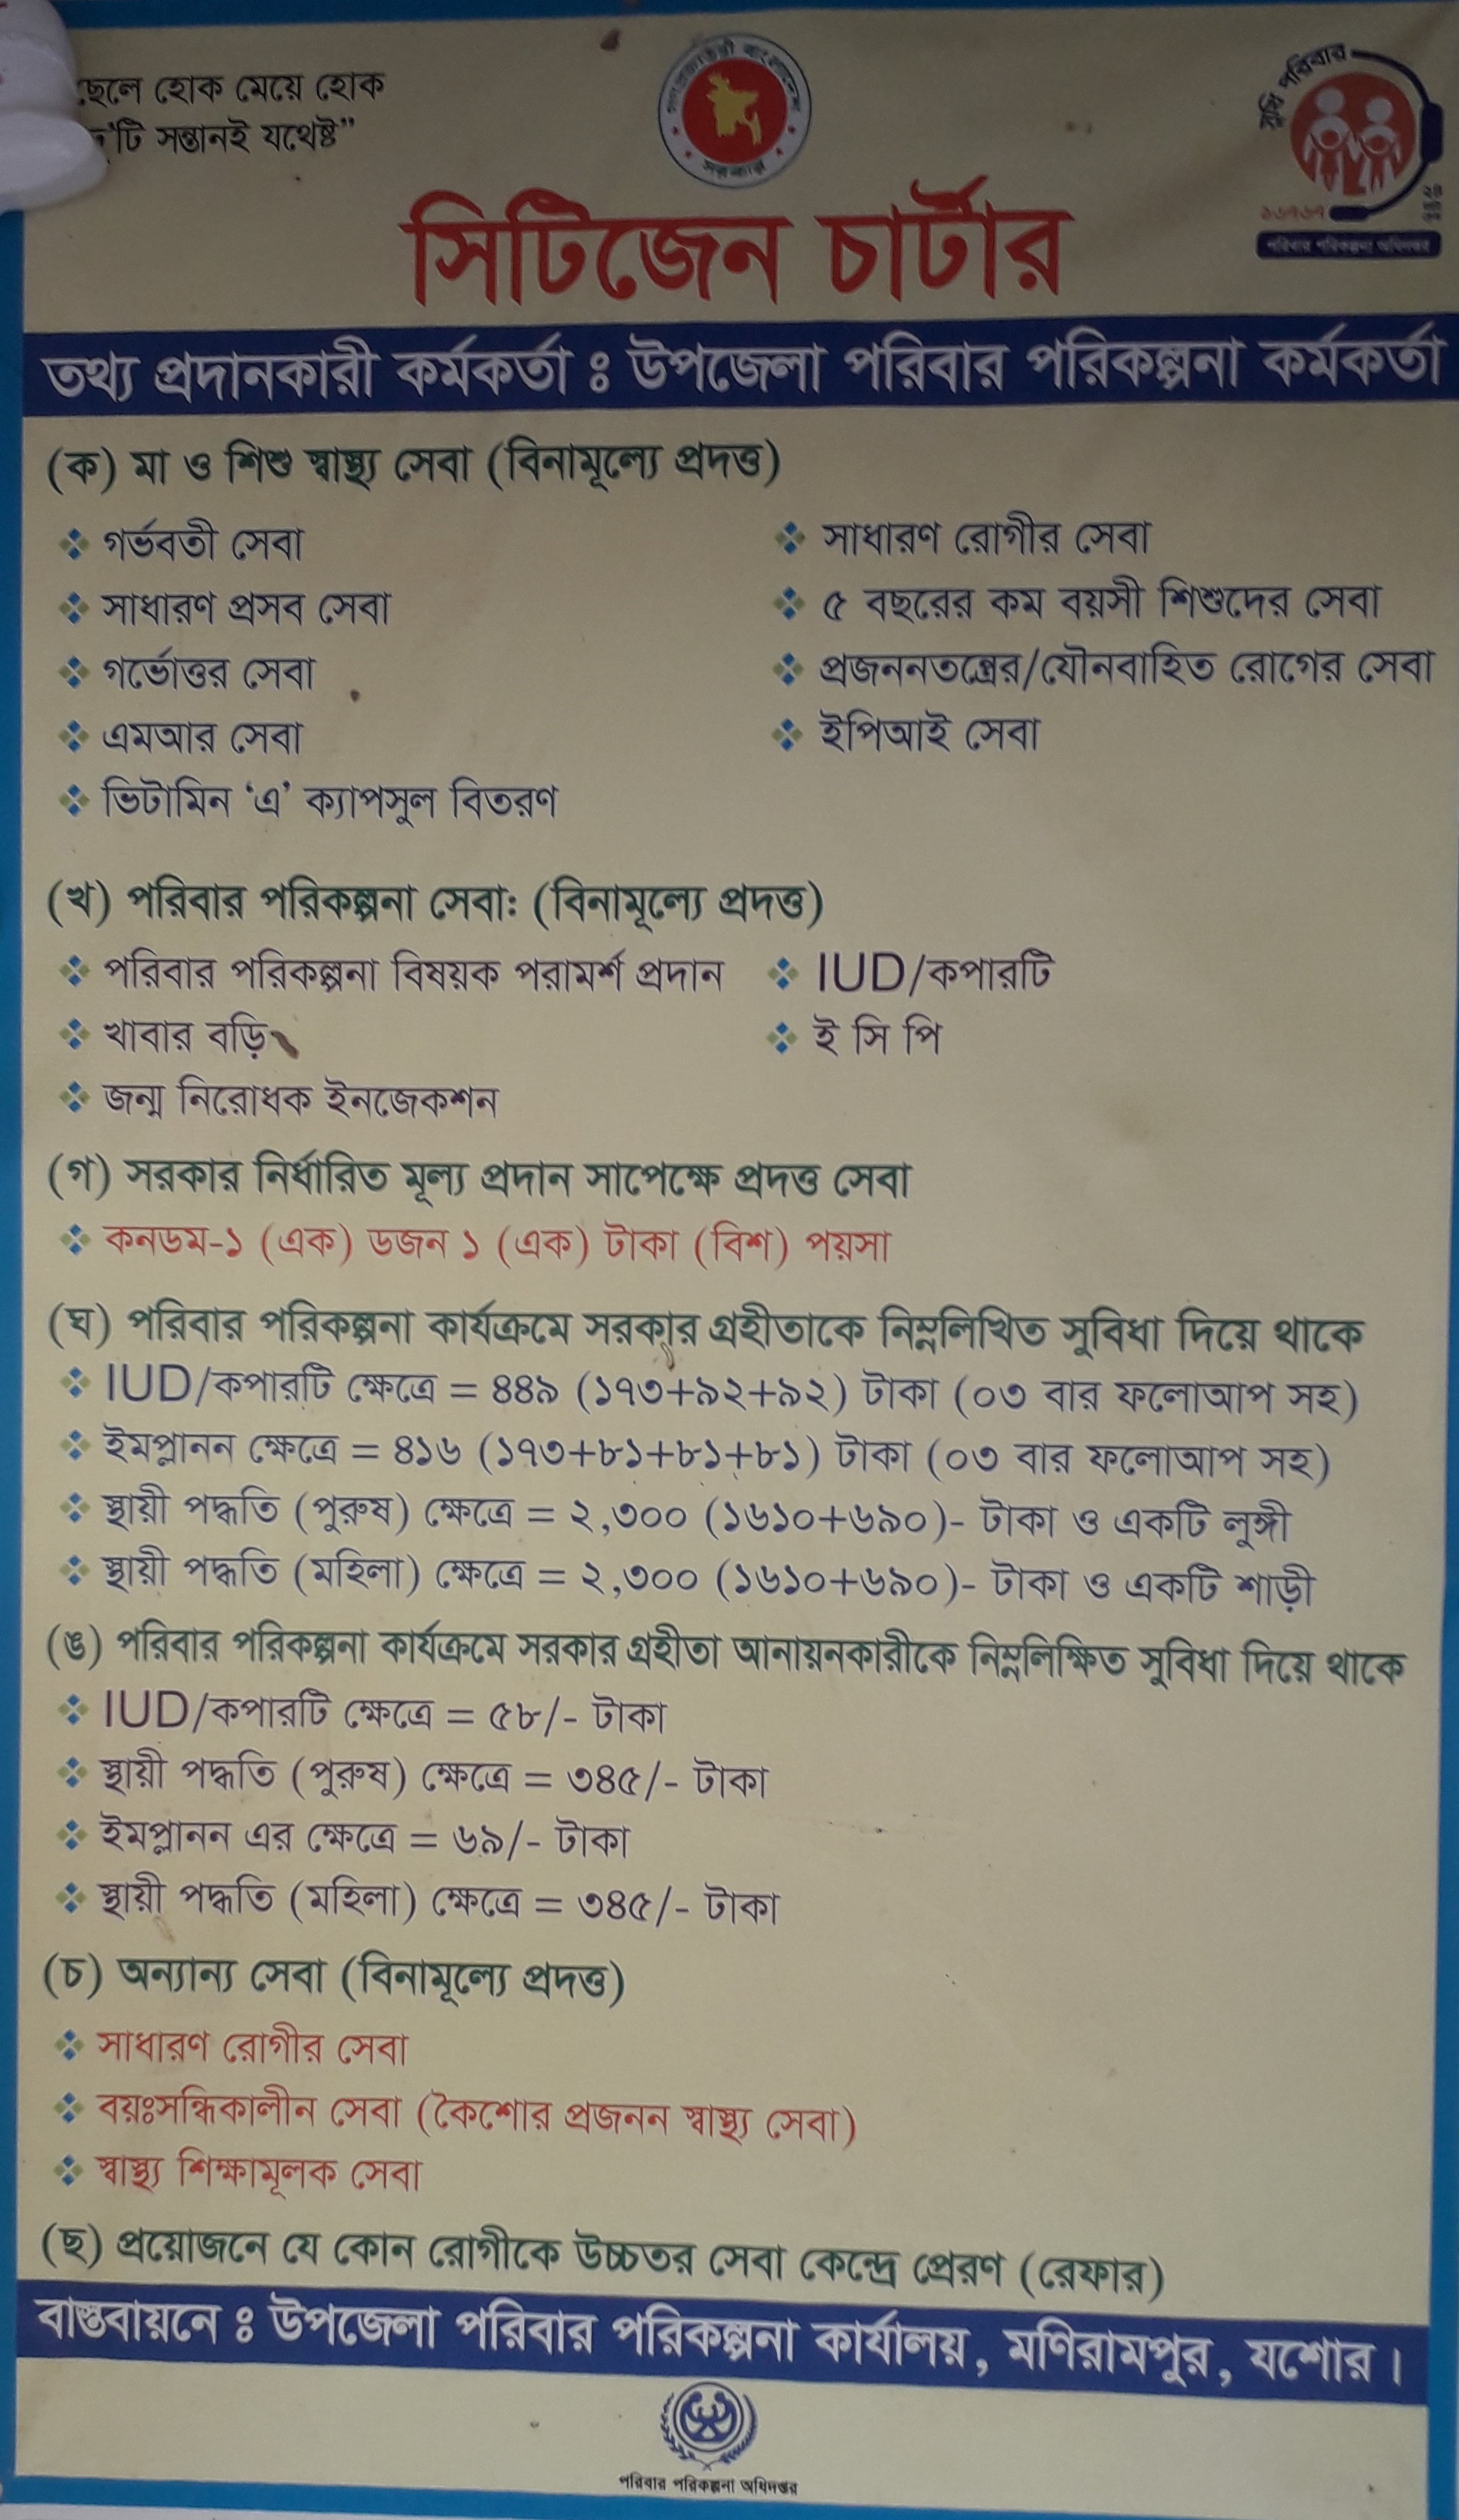 ছেলে হোক মেয়ে হোক
দু'টি সন্তানই যথেষ্ট”
গণপ্রজাতন্ত্রী বাংলাদেশ
সরকার
সুখী পরিবার
১৬৭৬৭
পরিবার পরিকল্পনা অধিদপ্তর
সিটিজেন চার্টার
তথ্য প্রদানকারী কর্মকর্তা ঃ উপজেলা পরিবার পরিকল্পনা কর্মকর্তা
(ক) মা ও শিশু স্বাস্থ্য সেবা (বিনামূল্যে প্রদত্ত)
❖ গর্ভবতী সেবা
❖ সাধারণ প্রসব সেবা
❖ গর্ভোত্তর সেবা
❖ এমআর সেবা
❖ ভিটামিন ‘এ’ ক্যাপসুল বিতরণ
❖ সাধারণ রোগীর সেবা
❖ ৫ বছরের কম বয়সী শিশুদের সেবা
❖ প্রজননতন্ত্রের/যৌনবাহিত রোগের সেবা
❖ ইপিআই সেবা
(খ) পরিবার পরিকল্পনা সেবাঃ (বিনামূল্যে প্রদত্ত)
❖ পরিবার পরিকল্পনা বিষয়ক পরামর্শ প্রদান
❖ খাবার বড়ি
❖ জন্ম নিরোধক ইনজেকশন
❖ IUD/কপারটি
❖ ই সি পি
(গ) সরকার নির্ধারিত মূল্য প্রদান সাপেক্ষে প্রদত্ত সেবা
❖ কনডম-১ (এক) ডজন ১ (এক) টাকা (বিশ) পয়সা
(ঘ) পরিবার পরিকল্পনা কার্যক্রমে সরকার গ্রহীতাকে নিম্নলিখিত সুবিধা দিয়ে থাকে
❖ IUD/কপারটি ক্ষেত্রে = ৪৪৯ (১৭৩+৯২+৯২) টাকা (০৩ বার ফলোআপ সহ)
❖ ইমপ্লানন ক্ষেত্রে = ৪১৬ (১৭৩+৮১+৮১+৮১) টাকা (০৩ বার ফলোআপ সহ)
❖ স্থায়ী পদ্ধতি (পুরুষ) ক্ষেত্রে = ২,৩০০ (১৬১০+৬৯০)- টাকা ও একটি লুঙ্গী
❖ স্থায়ী পদ্ধতি (মহিলা) ক্ষেত্রে = ২,৩০০ (১৬১০+৬৯০)- টাকা ও একটি শাড়ী
(ঙ) পরিবার পরিকল্পনা কার্যক্রমে সরকার গ্রহীতা আনায়নকারীকে নিম্নলিক্ষিত সুবিধা দিয়ে থাকে
❖ IUD/কপারটি ক্ষেত্রে = ৫৮/- টাকা
❖ স্থায়ী পদ্ধতি (পুরুষ) ক্ষেত্রে = ৩৪৫/- টাকা
❖ ইমপ্লানন এর ক্ষেত্রে = ৬৯/- টাকা
❖ স্থায়ী পদ্ধতি (মহিলা) ক্ষেত্রে = ৩৪৫/- টাকা
(চ) অন্যান্য সেবা (বিনামূল্যে প্রদত্ত)
❖ সাধারণ রোগীর সেবা
❖ বয়ঃসন্ধিকালীন সেবা (কৈশোর প্রজনন স্বাস্থ্য সেবা)
❖ স্বাস্থ্য শিক্ষামূলক সেবা
(ছ) প্রয়োজনে যে কোন রোগীকে উচ্চতর সেবা কেন্দ্রে প্রেরণ (রেফার)
বাস্তবায়নে ঃ উপজেলা পরিবার পরিকল্পনা কার্যালয়, মণিরামপুর, যশোর।
পরিবার পরিকল্পনা অধিদপ্তর